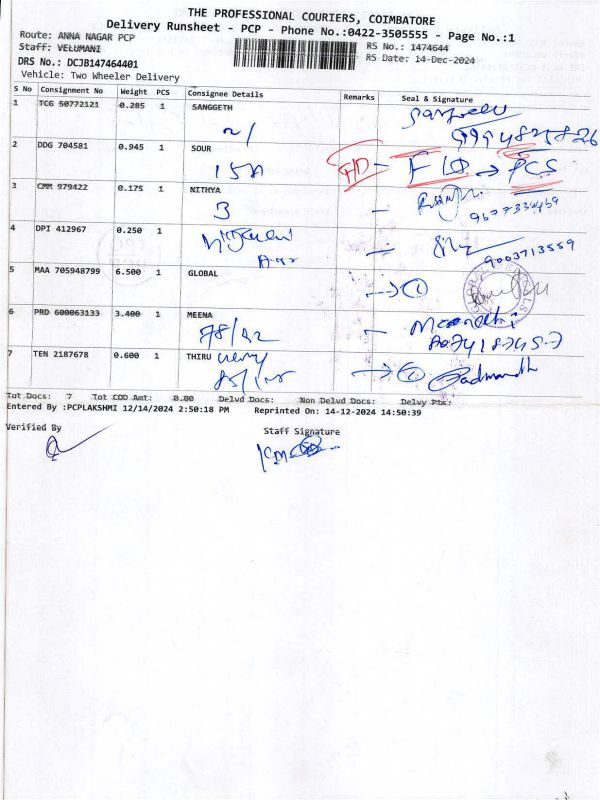 THE PROFESSIONAL COURIERS, COIMBATORE
Delivery Runsheet - PCP - Phone No.:0422-3505555 - Page No.:1
Route: ANNA NAGAR PCP
RS No.: 1474644
Staff: VELUMANI
RS Date: 14-Dec-2024
DRS No.: DCJB147464401
Vehicle: Two Wheeler Delivery
S No Consignment No Weight PCS Consignee Details Remarks Seal & Signature
1 TCG 50772121 0.285 1 SANGGETH
9994825826
2 DDG 704581 0.945 1 SOUR
F/D - F/D → PCS
3 CMM 979422 0.175 1 NITHYA
3
4 DPI 412967 0.250 1
9003713559
5 MAA 705948799 6.500 1 GLOBAL
→ 1
6 PRD 600063133 3.400 1 MEENA
78/92
7 TEN 2187678 0.600 1 THIRU
Tot Docs: 7 Tot COD Amt: 0.00 Delvd Docs: Non Delvd Docs: Delvy Pts:
Entered By :PCPLAKSHMI 12/14/2024 2:50:18 PM Reprinted On: 14-12-2024 14:50:39
Verified By
Staff Signature